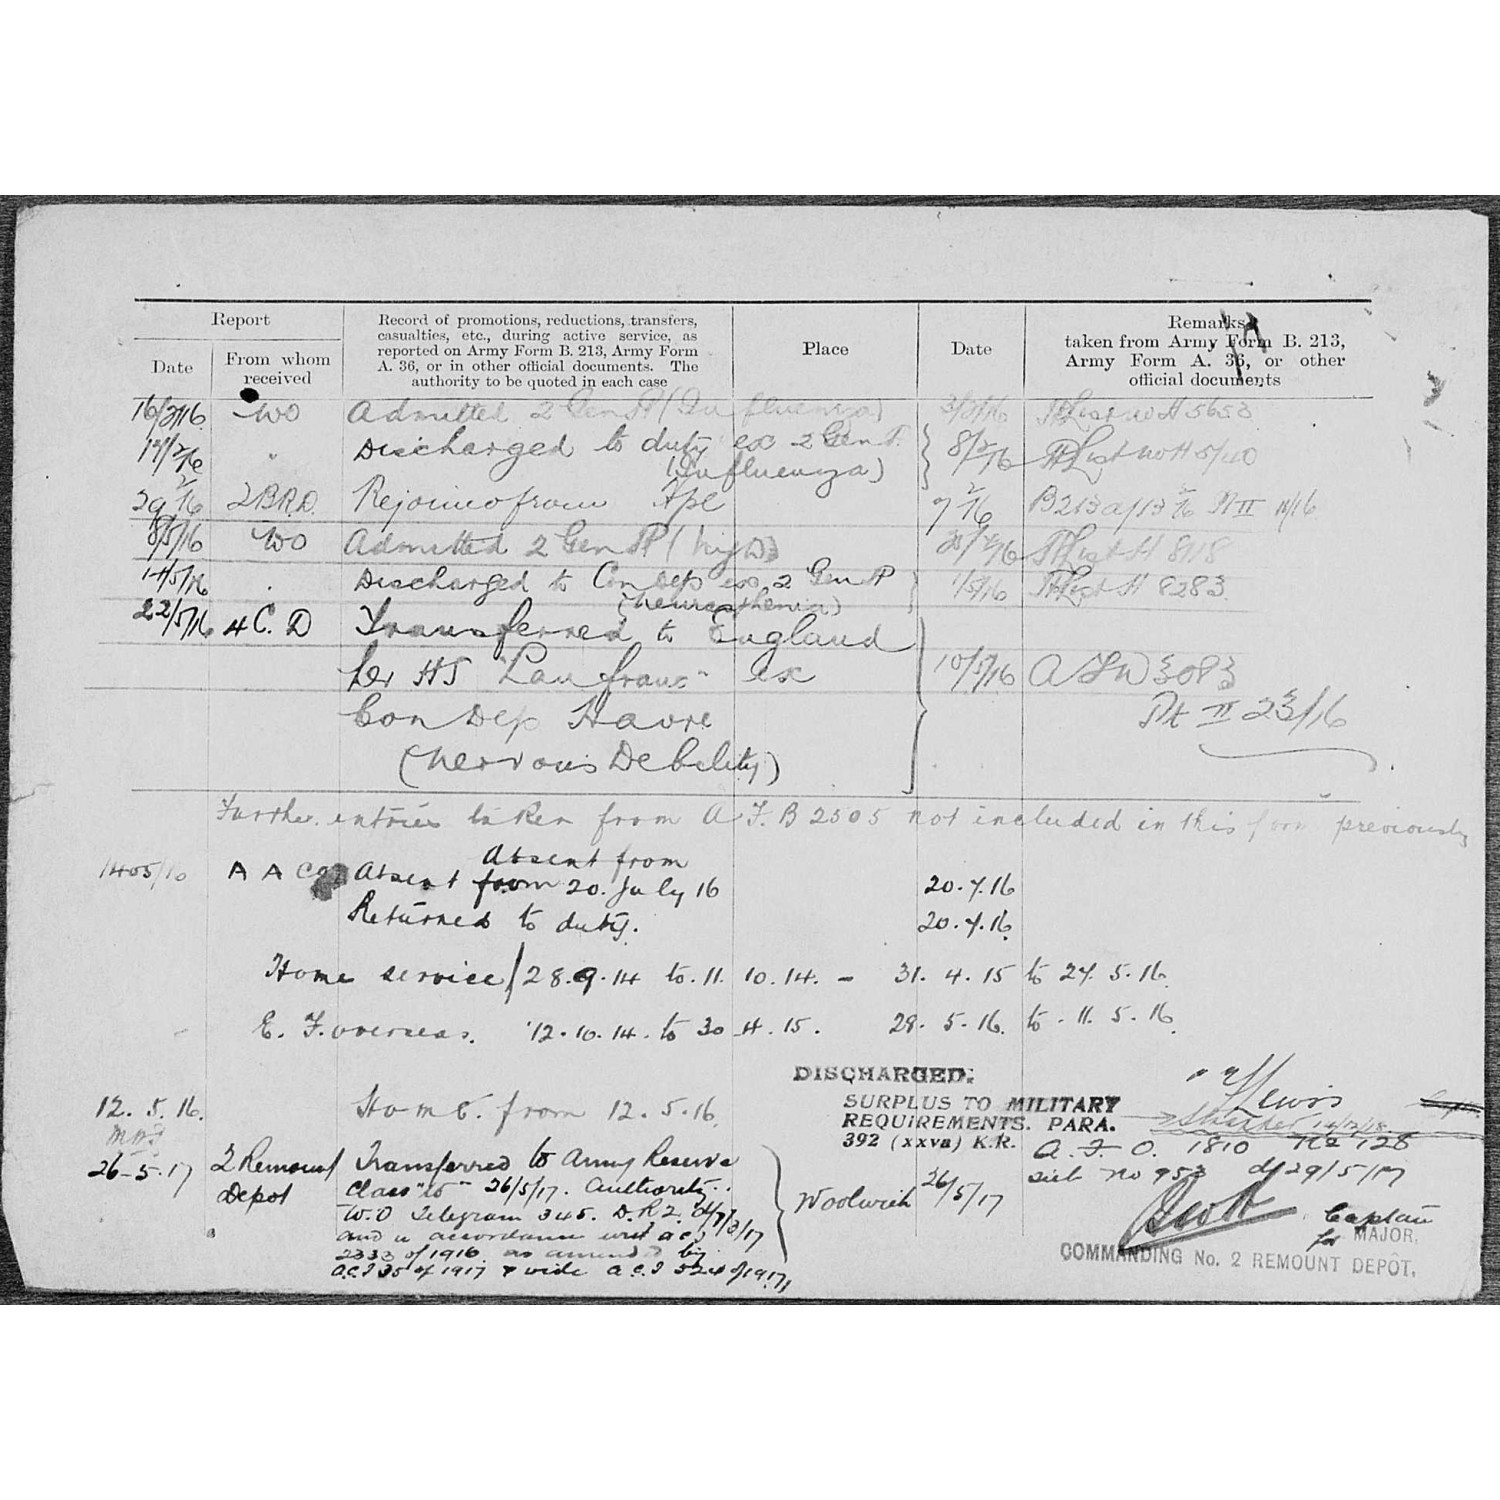 Report
Record of promotions, reductions, transfers,
casualties, etc., during active service, as
reported on Army Form B. 213, Army Form
A. 36, or in other official documents. The
authority to be quoted in each case
Place
Date
Remarks
taken from Army Form B. 213,
Army Form A. 36, or other
official documents
Date
From whom
received
16/2/16 WO Admitted 2 Gen H (Influenza) 3/2/16 H List no H 5653
17/2/16 " Discharged to duty ex 2 Gen H. 8/2/16 H List no H 5740
(Influenza)
29/2/16 2 B.R.D. Rejoined from Hpl 9/2/16 B213 d/13/2/16 Pt II 11/16
8/5/16 WO Admitted 2 Gen H H List H 8118
14/5/16 " Discharged to Con Dep ex 2 Gen H 1/5/16 H List H 8283
(Neurasthenia)
22/5/16 4 C. D Transferred to England
per HS "Lanfranc" ex 10/5/16 A 3083
Con Dep Havre Pt II 23/16
(Nervous Debility)
Further entries taken from A F. B 2505 not included in this form previously
Absent from
A A Absent from 20. July 16 20.7.16
Returned to duty. 20.7.16
Home service / 28.9.14 to 11. 10.14. - 31. 4. 15 to 27. 5. 16.
E. F. overseas. 12.10.14. to 30 4. 15. 28. 5. 16. to 11. 5. 16.
DISCHARGED.
SURPLUS TO MILITARY
REQUIREMENTS. PARA.
392 (xxva) K.R.
Lewis
12. 5. 16. Home. from 12.5.16.
A. F. O. 1810 No 128
26-5-17 2 Remount Transferred to Army Reserve
Depot Class "W" 26/5/17. Authority. Woolwich 26/5/17
sub no 953 d/29/5/17
W.O Telegram 345. D.R.2. d/7/3/17
and in accordance with A.C.I
2333 of 1916 as amended by
A.C.I 35 of 1917 & vide A.C.I 524 of 1917,
Scott Captain
for MAJOR,
COMMANDING No. 2 REMOUNT DEPÔT.